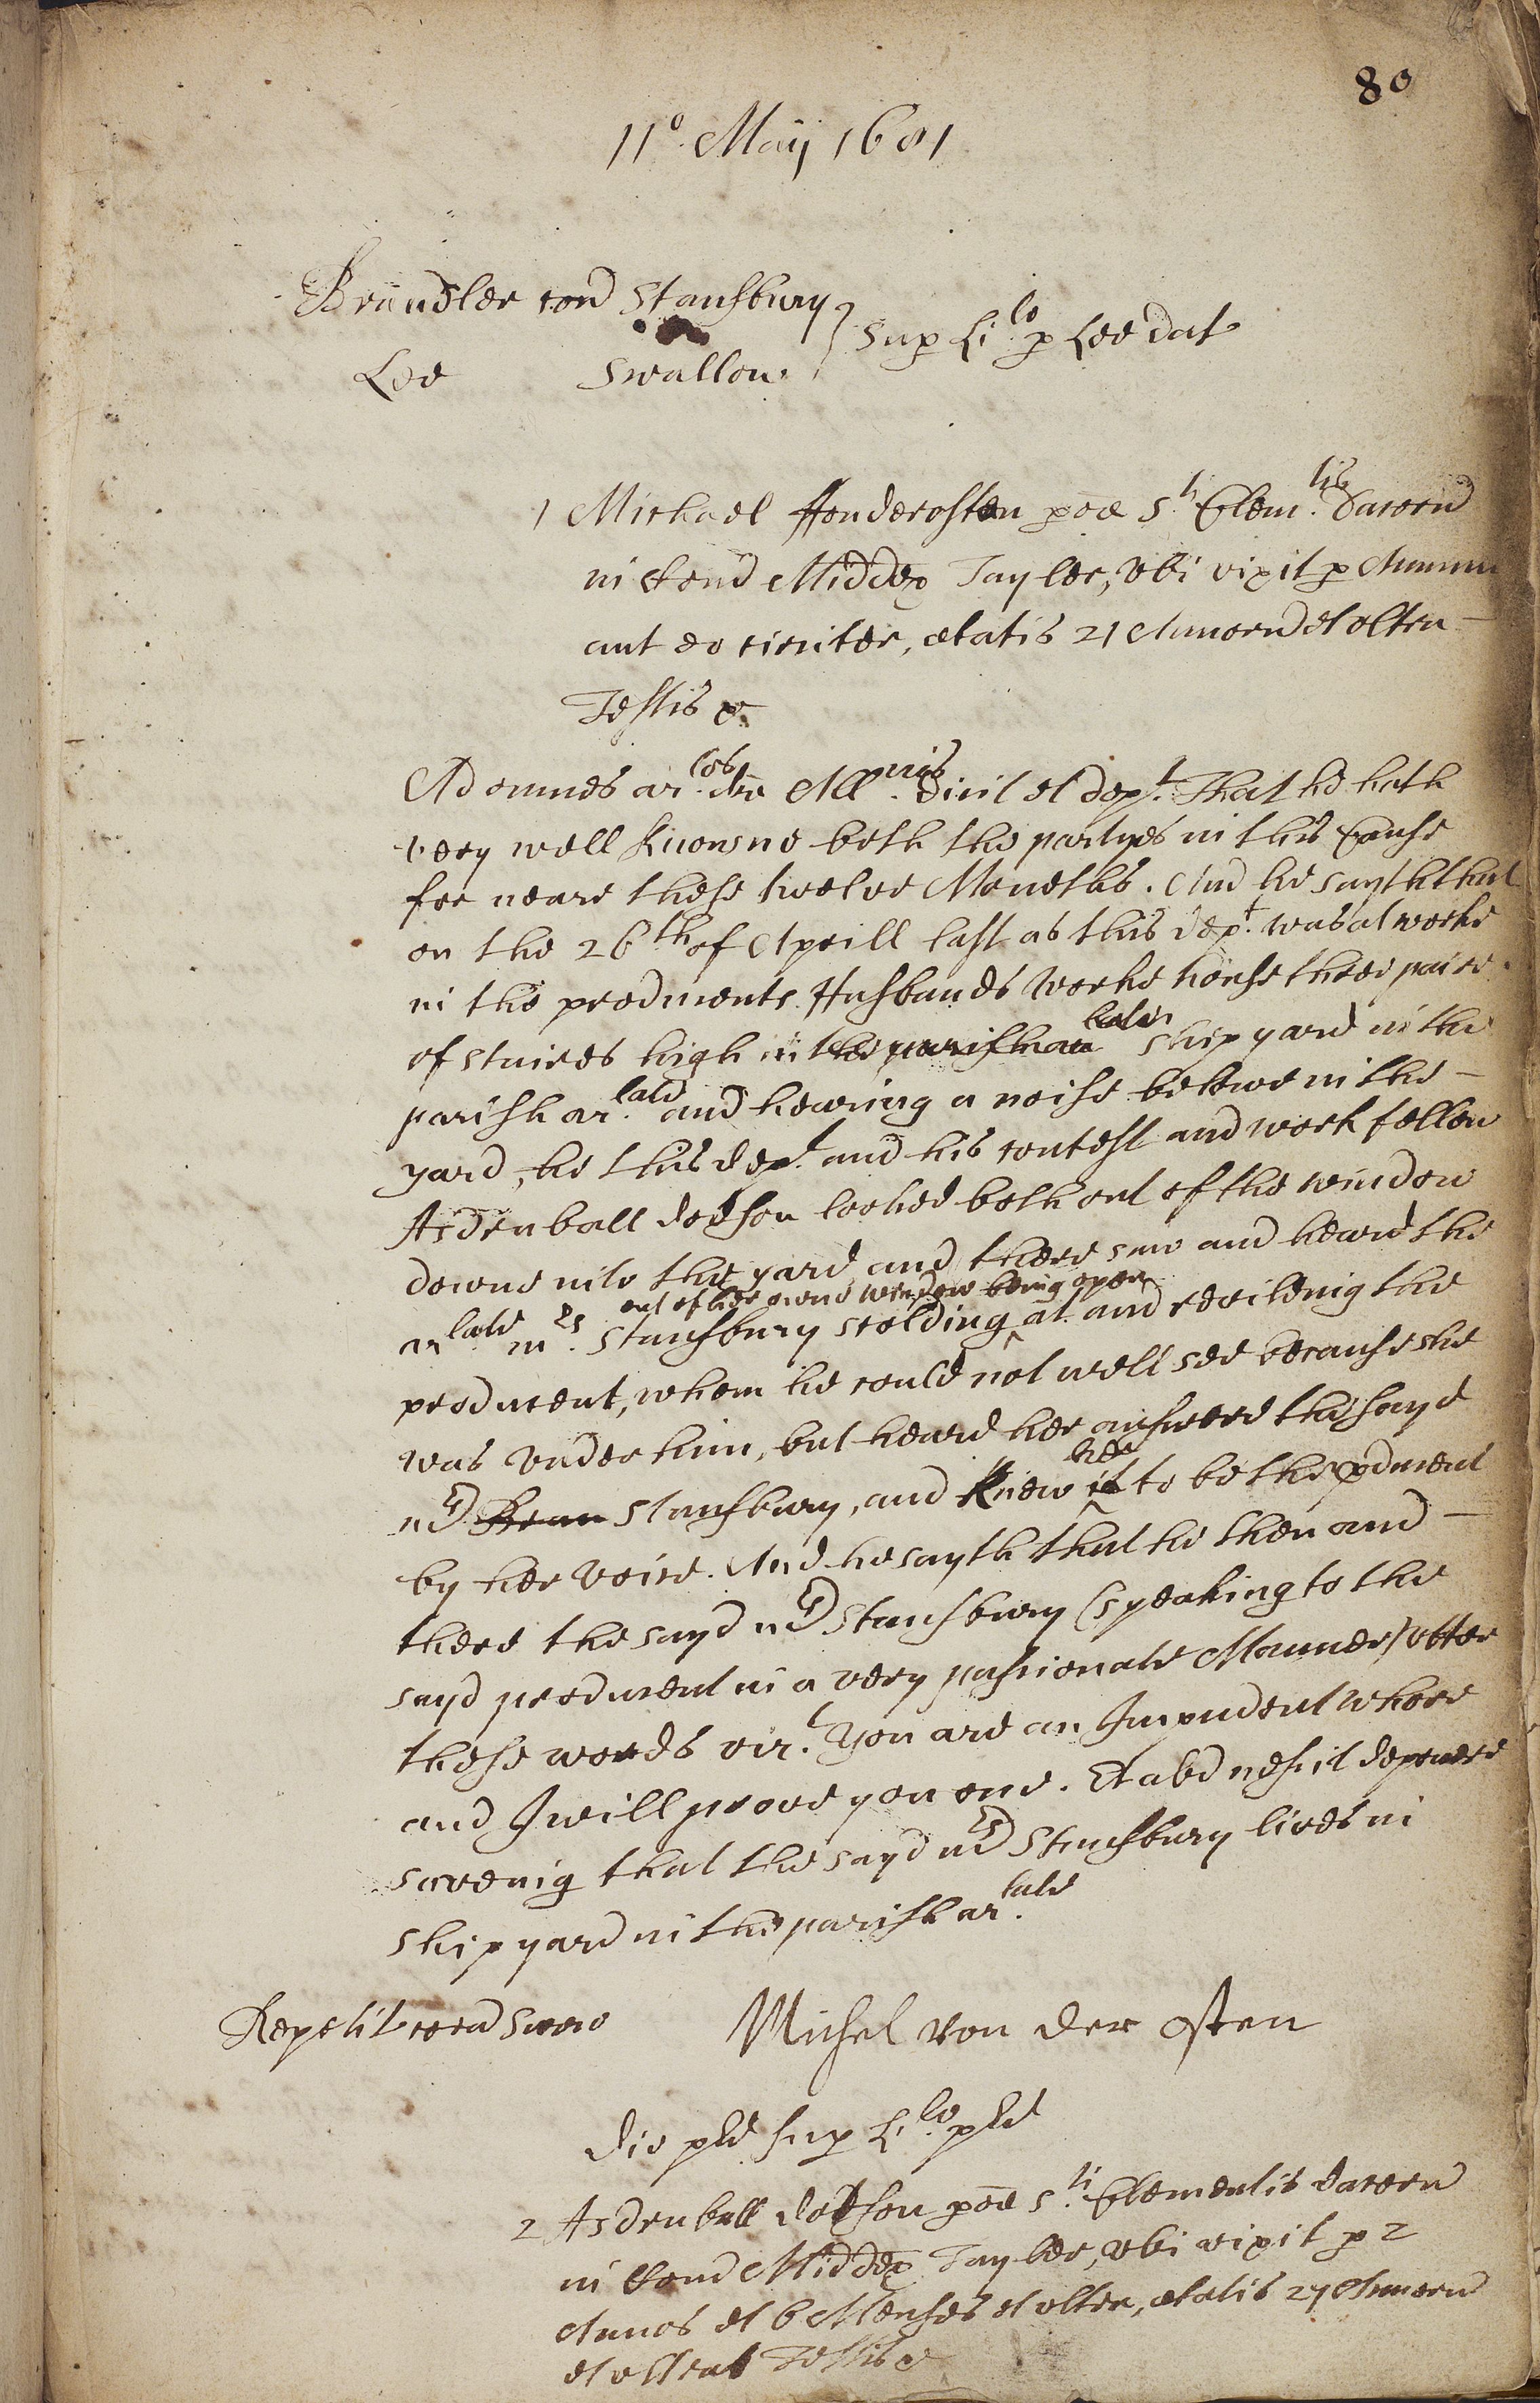 80
11o. Maij 1681
Brundler con Stansbury
Lee Swallow
Sup Lilo p Lee dat
1 Michael Honderosten poe Sti Clemtis Dacoru
in Com Middx Tayler, vbi vixit p Annum
aut eo circiter, ætatis 21 Annoru et ultra
Testis &c
Ad omnes arlos dce Allnis dicit et dept. That he hath
very well knowne both the partyes in this Cause
for neare these twelve Moneths. And he sayth that
on the 26th of Aprill last as this dept. was at worke
in the producents Husbands Worke house three paire
of staires high in the parish ar late Ship yard in the
parish arlate and hearing a noise below in the
yard, he this dept. and his contest and work fellow
Asdenball dodson looked both out of the window
downe into the yard and there saw and heard the
out of her owne window being open
arlate mrs Stansbury scolding at and revileing the
producent, whom he could not well see because she
was under him, but heard her answere the sayd
mrs Stansbury, and knew it her to be the producent
by her voice. And he sayth that he then and
there the sayd mrs Stansbury (speaking to the
sayd producent in a very passionate Manner) utter
these words vizt. You are an Impudent whore
and I will prove you one. Et alr nescit deponere
saveing that the sayd mrs Stansbury lives in
Ship yard in the parish arlate
Repetit cora Michel von der osten
die pd sup Lilo pd
2 Asdenball dodson poe Sti Clementis dacoru
in Com Middx Tayler, vbi vixit p 2
Annos et 6 Menses et ultra, ætatis 27 Annoru
et ultra Testis &c